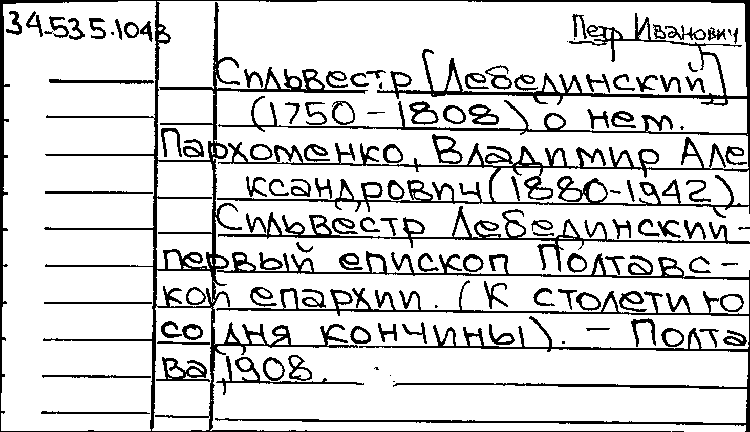 34.53.5.1043
Петр Иванович
Сильвестр [Лебединский,]
(1750-1808) о нем.
Пархоменко, Владимир Але
ксандрович (1880-1942)
Сильвестр Лебединский-
первый епископ Полтавс-
кой епархии. (К столетию
со дня кончины). - Полта
ва, 1908.